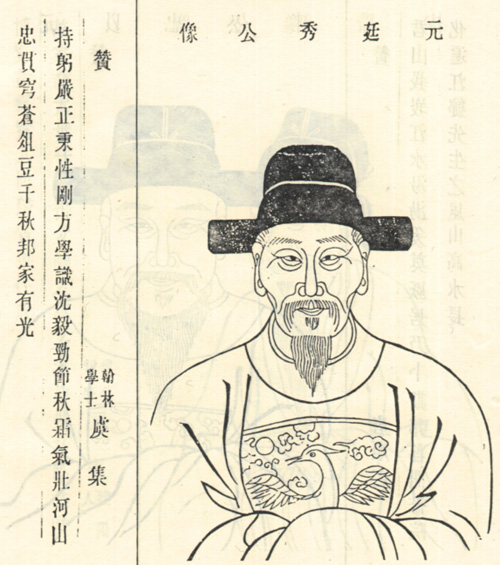 元廷秀公像
贊
翰林學士虞集
持躬嚴正秉性剛方學識沈毅勁節秋霜氣壯河山
忠貫穹蒼俎豆千秋邦家有光